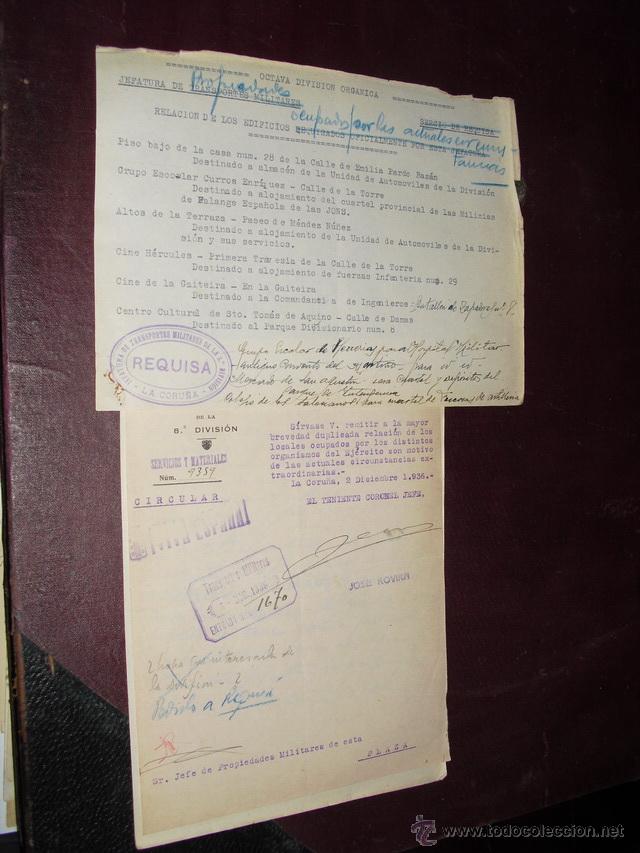 OCTAVA DIVISION ORGANICA
JEFATURA DE TRANSPORTES MILITARES
Propiedades
ocupados por las actuales circuns-
tancias
RELACION DE LOS EDIFICIOS OCUPADOS OFICIALMENTE POR ESTA JEFATURA
Piso bajo de la casa num. 28 de la Calle de Emilia Pardo Bazán
Destinado a almacén de la Unidad de Automoviles de la División
Grupo Escolar Curros Enríquez - Calle de la Torre
Destinado a alojamiento del cuartel provincial de las Milicias
de Falange Española de las JONS.
Altos de la Terraza - Paseo de Méndez Núñez
Destinado a alojamiento de la Unidad de Automoviles de la Divi-
sión y sus servicios.
Cine Hércules - Primera Travesia de la Calle de la Torre
Destinado a alojamiento de fuerzas Infanteria num. 29
Cine de la Gaiteira - En la Gaiteira
Destinado a la Comandancia de Ingenieros - Batallón de Zapadores nº 8.
Centro Cultural de Sto. Tomás de Aquino - Calle de Damas
Destinado al Parque Divisionario num. 8
Grupo Escolar de para Hospital Militar
para id id
Mercado de San Agustin - para Cuartel y depositos del
Parque de Intendencia
Colegio de para cuartel de de artilleria
JEFATURA DE TRANSPORTES MILITARES DE LA 8ª DIVISION
REQUISA
LA CORUÑA
DE LA
8.ª DIVISIÓN
SERVICIOS Y MATERIALES
Núm. 9389
CIRCULAR
Sírvase V. remitir a la mayor
brevedad duplicada relación de los
locales ocupados por los distintos
organismos del Ejército con motivo
de las actuales circunstancias ex-
traordinarias.-
La Coruña, 2 Diciembre 1.936.-
EL TENIENTE CORONEL JEFE,
¡VIVA ESPAÑA!
1670
JOSE ROVIRA
la
a Requisa
Sr. Jefe de Propiedades Militares de esta
PLAZA
todocoleccion
www.todocoleccion.net